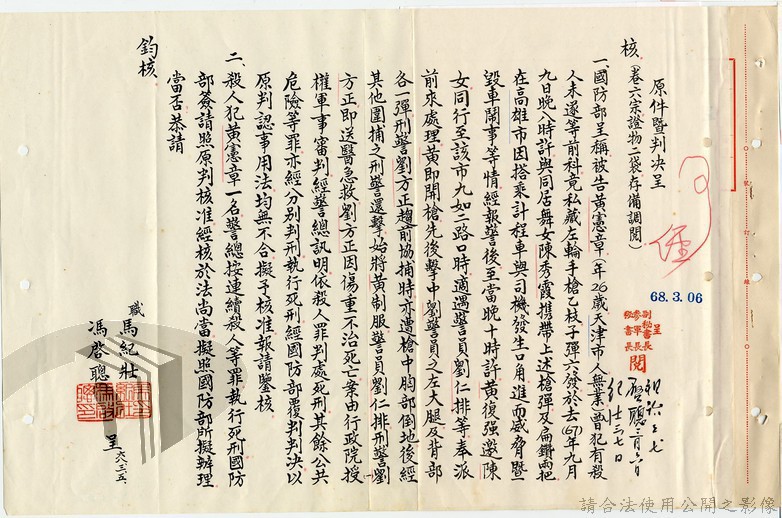 原件暨判決呈
核(卷六宗證物二袋存備調閱)
一、國防部呈稱被告黃憲章年26歲天津市人無業曾犯有殺
人未遂等前科竟私藏左輪手槍乙枝子彈六發於去(67)年九月
九日晚八時許與同居舞女陳秀霞携帶上述槍彈及扁鑽兩把
在高雄市因搭乘計程車與司機發生口角進而威脅暨
毀車鬧事等情經報警後至當晚十時許黃復强邀陳
女同行至該市九如二路口時適遇警員劉仁排等奉派
前來處理黃即開槍先後擊中劉警員之左大腿及背部
各一彈刑警劉方正趨前協捕時亦遭槍中胸部倒地後經
其他圍捕之刑警還擊始將黃制服警員劉仁排刑警劉
方正即送醫急救劉方正因傷重不治死亡案由行政院授
權軍事審判經警總訊明依殺人罪判處死刑其餘公共
危險等罪亦經分別判刑執行死刑經國防部覆判判決以
原判認事用法均無不合擬予核准報請鑒核
二、殺人犯黃憲章一名警總按連續殺人等罪執行死刑國防
部簽請照原判核准經核於法尚當擬照國防部所擬辦理
當否恭請
鈞核
職 馬紀壯
馮啓聰 呈 六八、三、五、
68.3.06
呈
副秘書長
參軍長
秘書長
閱
啓聰 三月六日
紀壯 三七日
可
經
裝訂線
請合法使用公開之影像